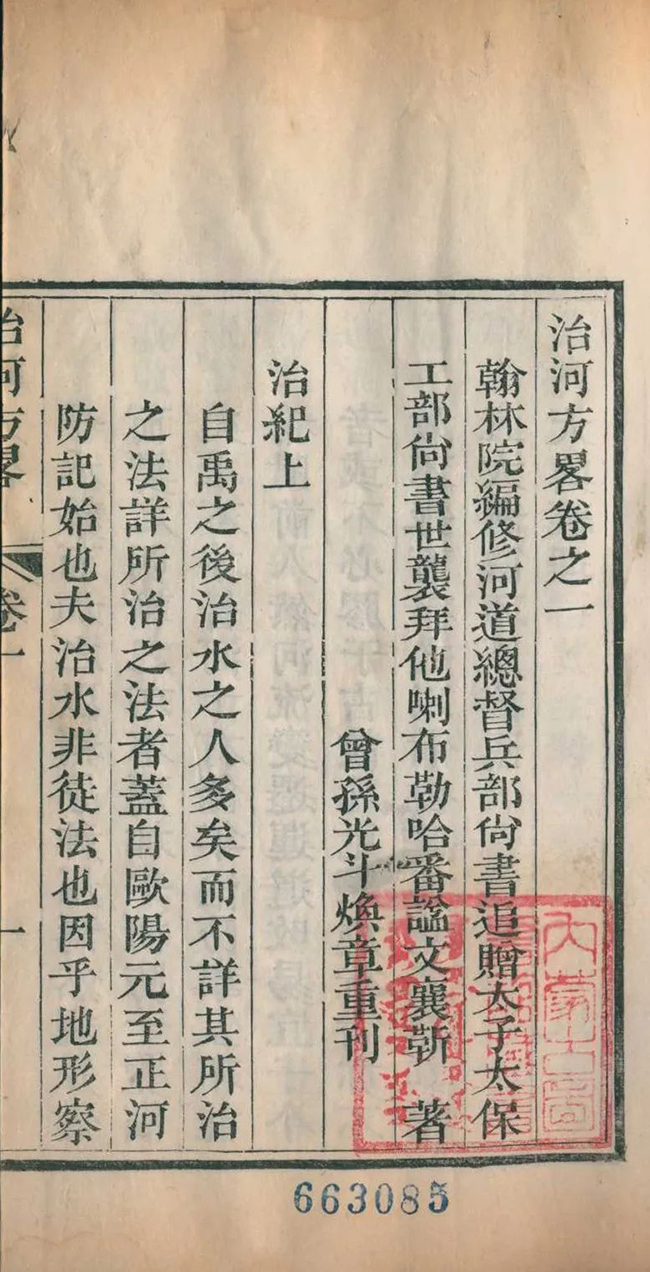 治河方畧卷之一
翰林院編修河道總督兵部尙書追贈太子太保
工部尙書世襲拜他喇布勒哈番諡文襄靳 著
曾孫光斗煥章重刊
治紀上
自禹之後治水之人多矣而不詳其所治
之法詳所治之法者蓋自歐陽元至正河
防記始也夫治水非徒法也因乎地形察
治河方畧 卷一 一
663085